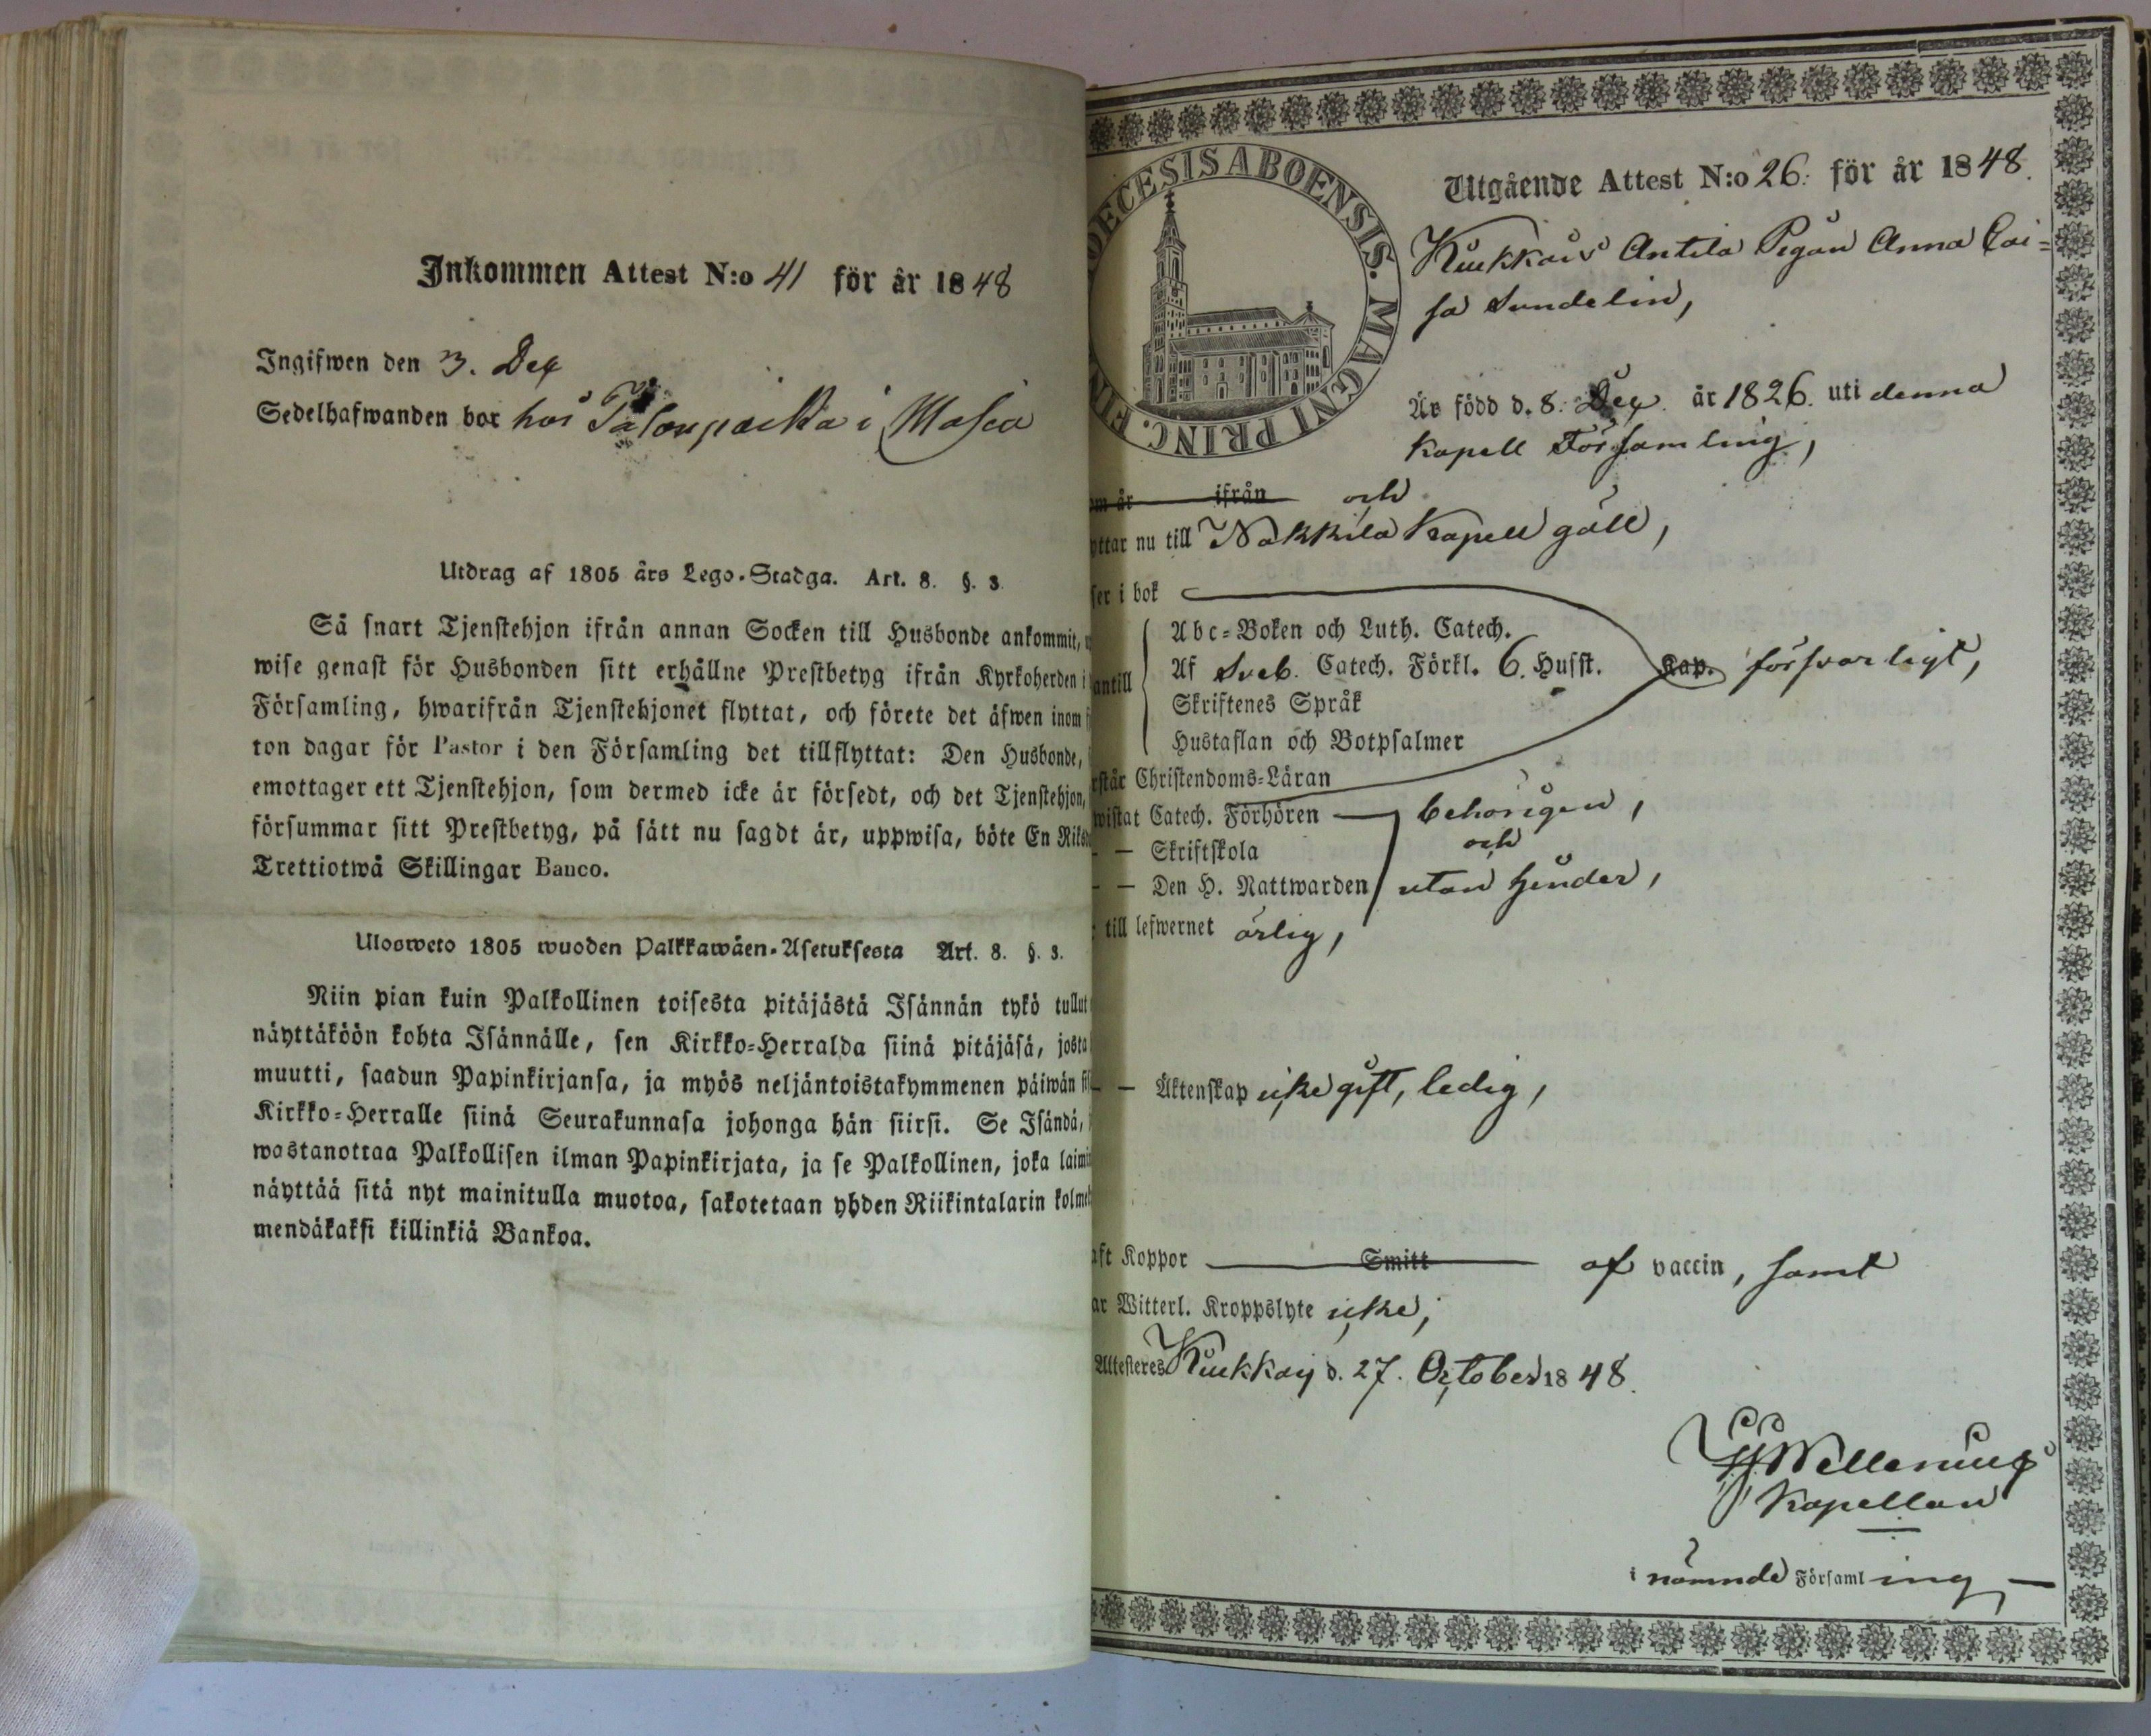 Inkommen Attest N:o 41 för år 1848
Ingifwen den 3. Dec
Sedelhafwanden bor hos i Masia
Utdrag af 1805 års Lego-Stadga. Art. 8. §. 3.
Så snart Tjenstehjon ifrån annan Socken till Husbonde ankommit,
wise genast för Husbonden sitt erhållne Prestbetyg ifrån Kyrkoherden i
Församling, hwarifrån Tjenstehjonet flyttat, och förete det äfwen inom
ton dagar för Pastor i den Församling det tillflyttat: Den Husbonde,
emottager ett Tjenstehjon, som dermed icke är försedt, och det Tjenstehjon,
försummar sitt Prestbetyg, på sätt nu sagdt är, uppwisa, böte En Riks
Trettiotwå Skillingar Banco.
Ulosweto 1805 wuoden Palkkawäen-Asetuksesta Art. 8. §. 3.
Niin pian kuin Palkollinen toisesta pitäjästä Isännän tykö tullut
näyttäköön kohta Isännälle, sen Kirkko-Herralda siinä pitäjäsä, josta
muutti, saadun Papinkirjansa, ja myös neljäntoistakymmenen päiwän
Kirkko-Herralle siinä Seurakunnasa johonga hän siirsi. Se Isändä,
wastanottaa Palkollisen ilman Papinkirjata, ja se Palkollinen, joka laimi
näyttää sitä nyt mainitulla muotoa, sakotetaan yhden Riikintalarin kolme
mendäkaksi killinkiä Bankoa.
DECESIS ABOENSIS. MAGNI PRINC. FIN
Utgående Attest N:o 26. för år 1848.
Kiukkais Antila Pigan Anna Cai=
sa Sundelin,
Är född d. 8. Dec. år 1826. uti denna
Kapell Församling,
om år ifrån och
yttar nu till Nakkila Kapell gäll,
ser i bok
antill
Abc-Boken och Luth. Catech.
Af Sveb. Catech. Förkl. 6. Husst. Kap. försvarligt,
Skriftenes Språk
Hustaflan och Botpsalmer
rstår Christendoms-Läran
wistat Catech. Förhören behörigen,
— Skriftskola och
— Den H. Nattwarden utan hinder,
till lefwernet ärlig,
— Äktenskap icke gift, ledig,
aft Koppor Smitt af vaccin, samt
ar Witterl. Kroppslyte icke,
Attesteres Kiukkais d. 27. October 1848.
Kapellan
i nämnde Församling —